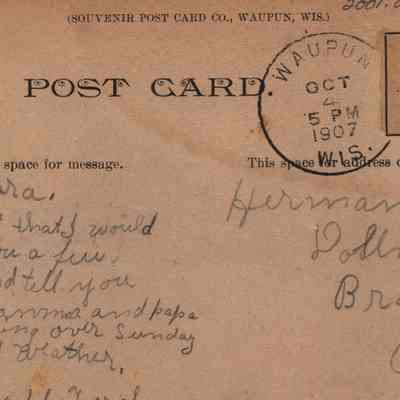 2001.
(SOUVENIR POST CARD CO., WAUPUN, WIS.)
POST CARD.
WAUPUN
OCT
4
5 PM
1907
WIS.
space for message.
This space for address
ra.
that I would
you a few
nd tell you
mamma and papa
ing over Sunday
d Weather.
Herman
Doll
Bra